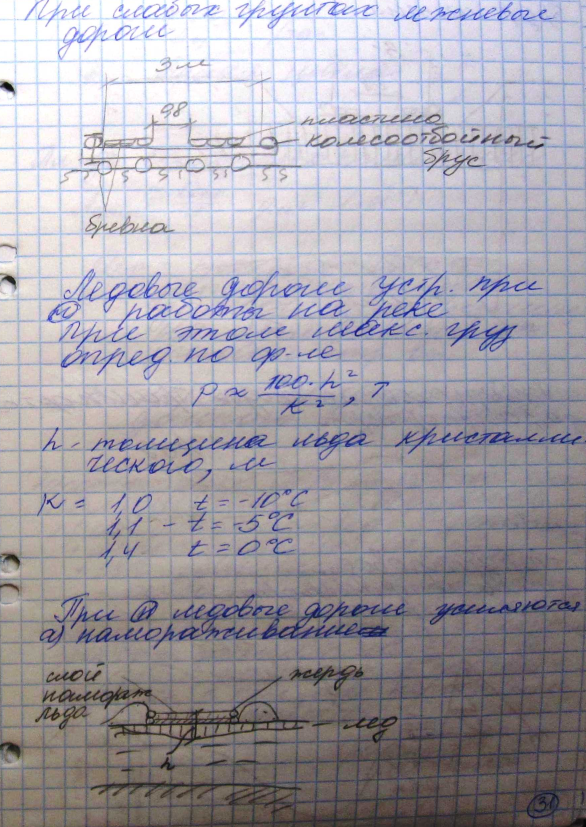 При слабых грунтах лежневые
дороги
3 м
98
пластина
колесоотбойный
брус
бревна
Ледовые дороги устр. при
работы на реке
при этом макс. груз
опред. по ф-ле
P ≈ 100·h² / K², т
h - толщина льда кристалли
ческого, м
K = 1,0 t = -10°C
1,1 - t = -5°C
1,4 t = 0°C
При ледовые дороги усиляются
а) намораживание
слой
намораж
льда
жердь
лед
h
31